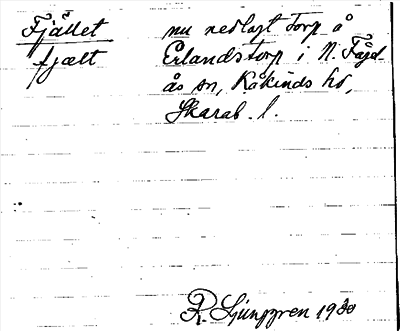 Fjället
fjælt
nu nedlagt torp å
Erlandstorp i N. Fågel-
ås sn, Kåkinds hd,
Skarab. l.
R. Ljunggren 1930